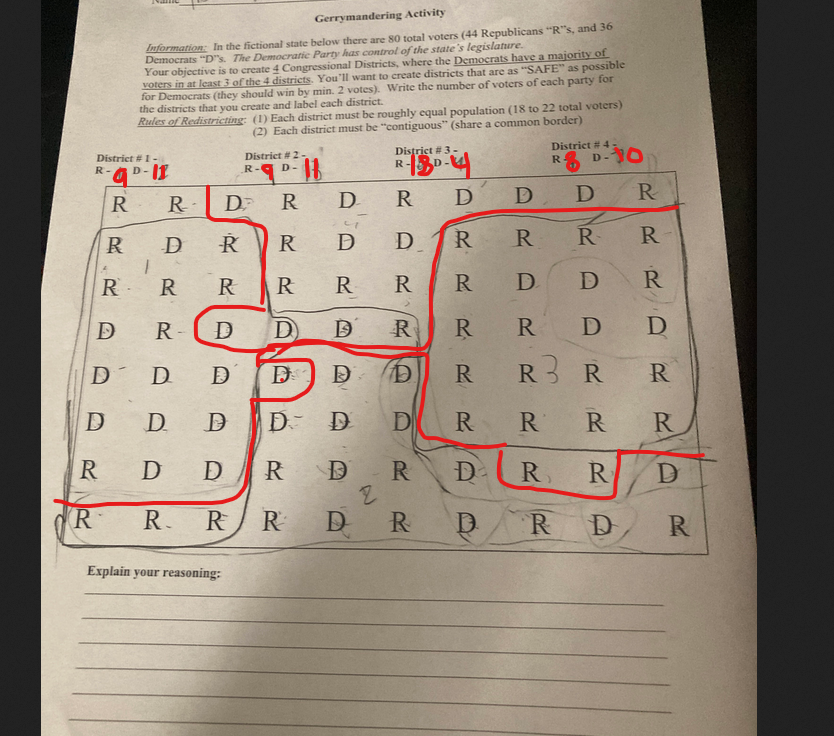 Name
Gerrymandering Activity
Information: In the fictional state below there are 80 total voters (44 Republicans “R”s, and 36
Democrats “D”s. The Democratic Party has control of the state’s legislature.
Your objective is to create 4 Congressional Districts, where the Democrats have a majority of
voters in at least 3 of the 4 districts. You’ll want to create districts that are as “SAFE” as possible
for Democrats (they should win by min. 2 votes). Write the number of voters of each party for
the districts that you create and label each district.
Rules of Redistricting: (1) Each district must be roughly equal population (18 to 22 total voters)
(2) Each district must be “contiguous” (share a common border)
District # 1 - District # 2 - District # 3 - District # 4 -
R - 9 D - 11 R - 9 D - 11 R - 18 D - 4 R 8 D - 10
R R D R D R D D D R
R D R R D D R R R R
R R R R R R R D D R
D R D D D R R R D D
D D D D D D R R 3 R R
D D D D D D R R R R
R D D R D R D R R D
2
R R R R D R D R D R
Explain your reasoning: